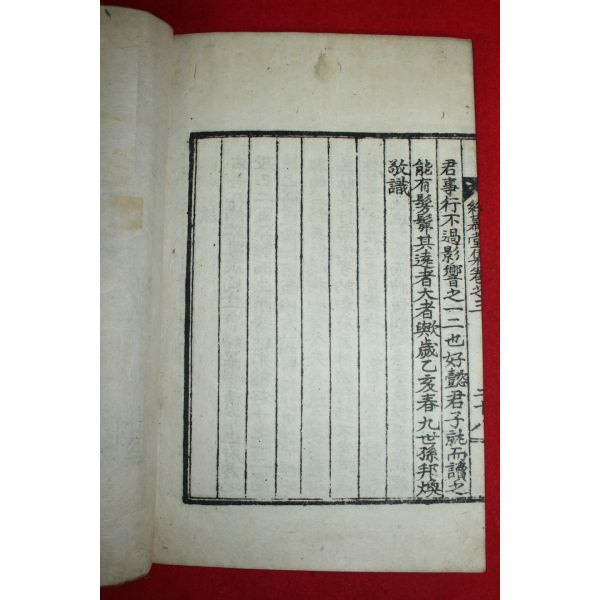 堂集卷之三
二十八
君事行不過影響之一二也好懿君子就而讀之
能有髣髴其遠者大者歟歲乙亥春九世孫邦煥
敬識